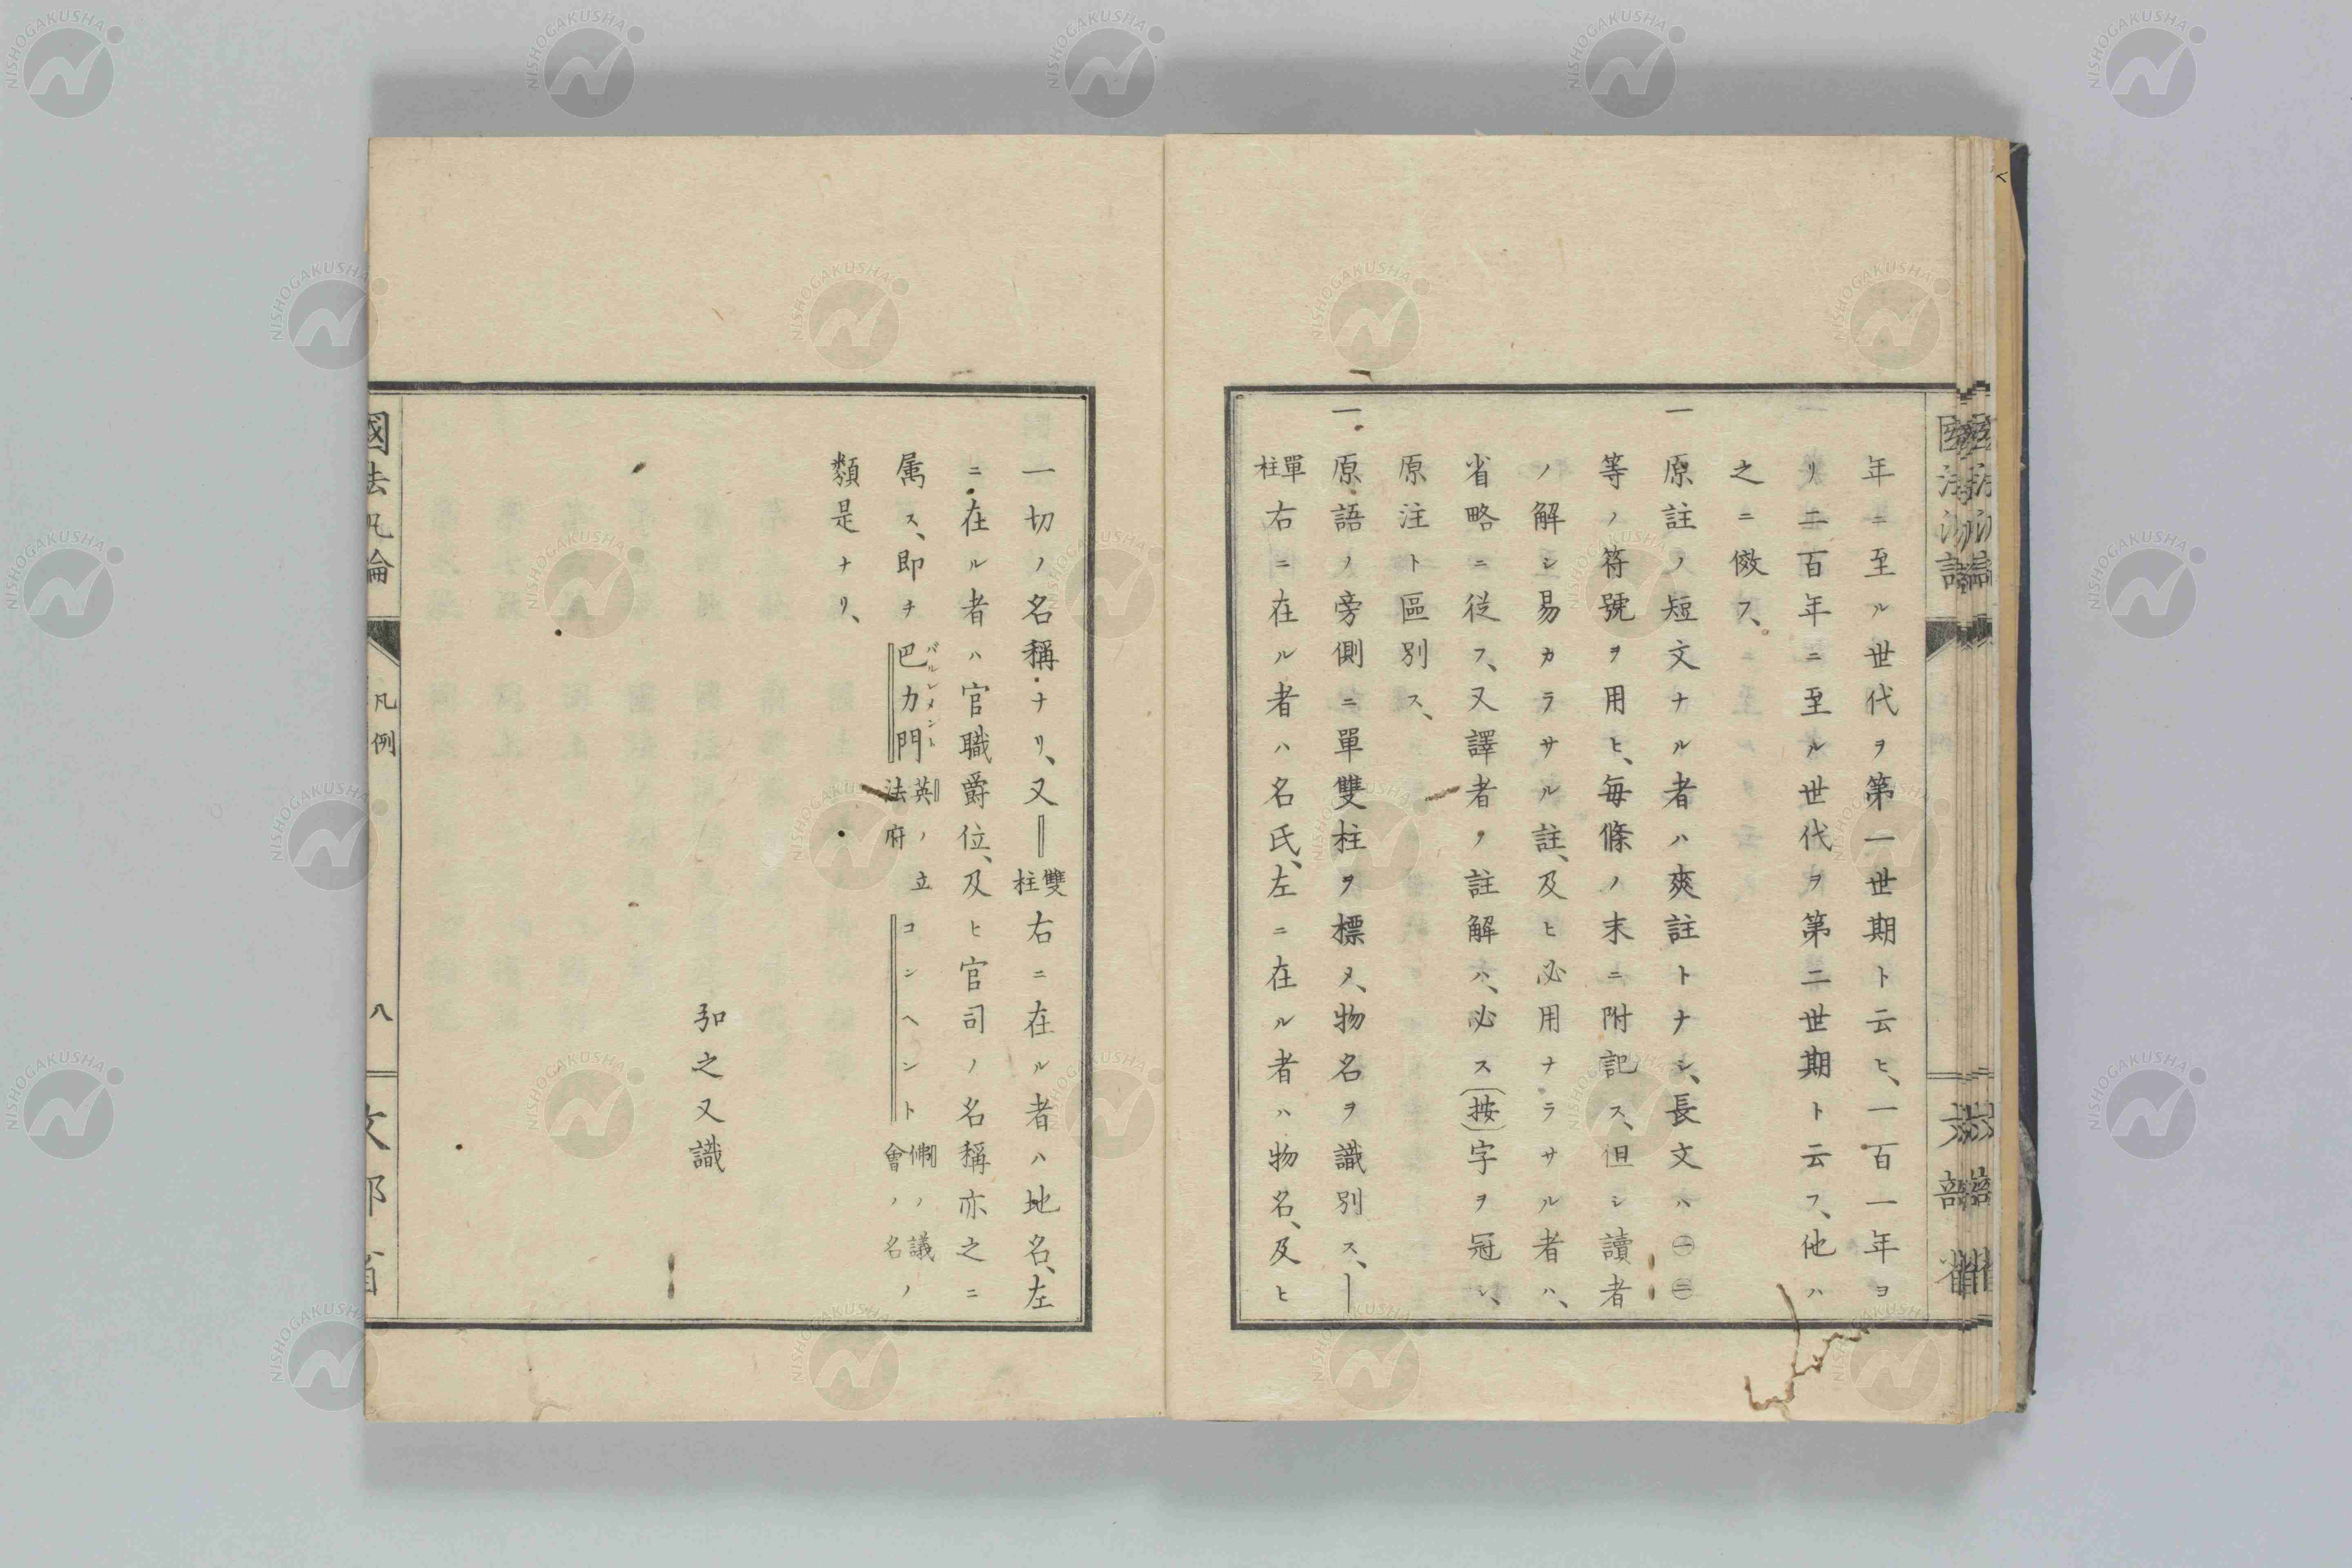 年ニ至ル世代ヲ第一世期ト云ヒ、一百一年ヨ
リ二百年ニ至ル世代ヲ第二世期ト云フ、他ハ
之ニ倣フ、
一 原註ノ短文ナル者ハ爽註トナシ、長文ハ㊀㊁
等ノ符號ヲ用ヒ、毎條ノ末ニ附記ス、但シ讀者
ノ解シ易カラサル註、及ヒ必用ナラサル者ハ、
省略ニ従フ、又譯者ノ註解ハ、必ス(按)字ヲ冠シ、
原注ト區別ス、
一 原語ノ旁側ニ單雙柱ヲ標メ、物名ヲ識別ス、｜
單柱右ニ在ル者ハ名氏、左ニ在ル者ハ物名、及ヒ
一切ノ名稱ナリ、又‖雙柱右ニ在ル者ハ地名、左
ニ在ル者ハ官職爵位、及ヒ官司ノ名稱亦之ニ
属ス、即チ巴力門英ノ立法府コンヘント佛ノ議會ノ名ノ
バルレメント
類是ナリ、
弘之又識
國法汎論
凡例
八
文部省
NISHOGAKUSHA